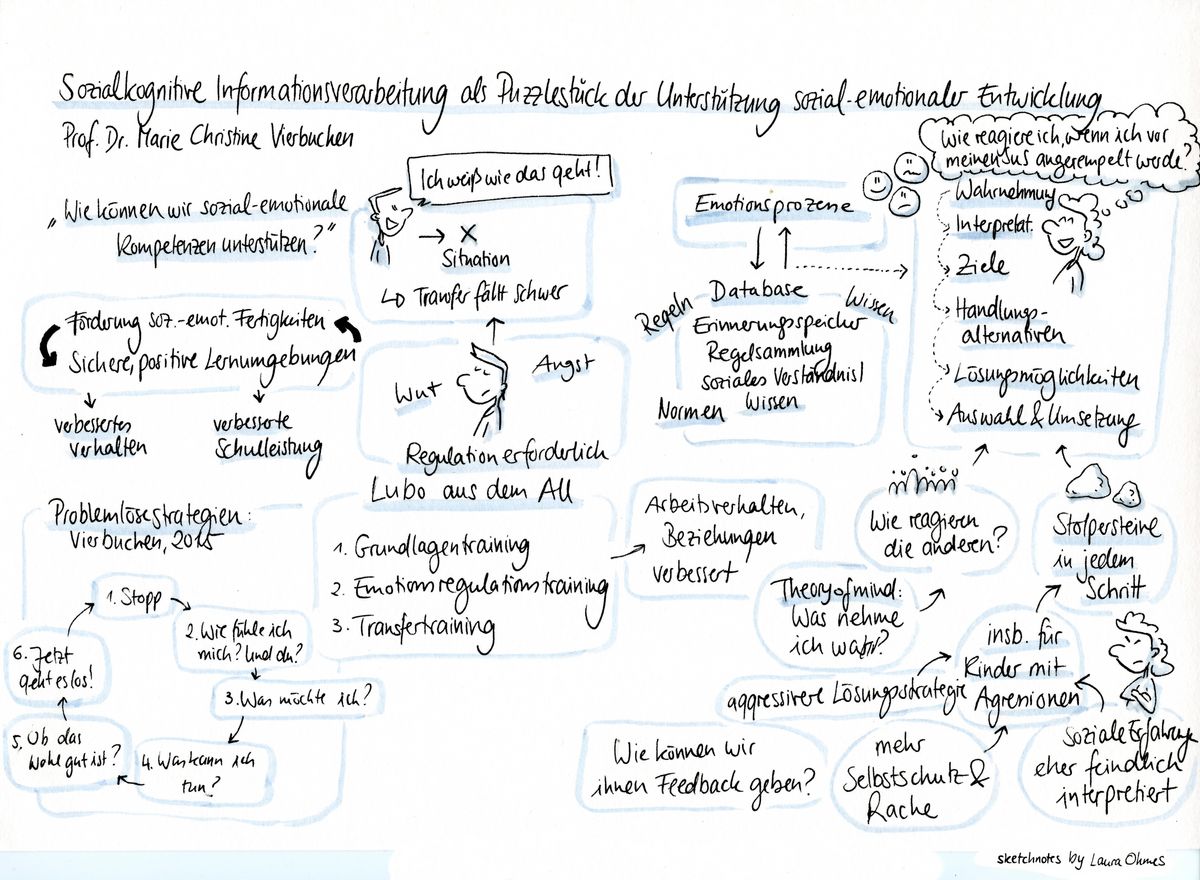 Sozialkognitive Informationsverarbeitung als Puzzlestück der Unterstützung sozial-emotionaler Entwicklung
Prof. Dr. Marie Christine Vierbuchen
„Wie können wir sozial-emotionale
Kompetenzen unterstützen?"
Förderung soz.-emot. Fertigkeiten
Sichere, positive Lernumgebungen
verbessertes
Verhalten
verbesserte
Schulleistung
Ich weiß wie das geht!
→ X
Situation
↳ Transfer fällt schwer
Wut
Angst
Regulation erforderlich
Lubo aus dem All
1. Grundlagentraining
2. Emotionsregulationstraining
3. Transfertraining
Arbeitsverhalten,
Beziehungen
verbessert
Problemlösestrategien:
Vierbuchen, 2015
1. Stopp
2. Wie fühle ich
mich? Und du?
3. Was möchte ich?
4. Was kann ich
tun?
5. Ob das
wohl gut ist?
6. Jetzt
geht es los!
Emotionsprozesse
Database
Erinnerungsspeicher
Regelsammlung
soziales Verständnis/
Wissen
Regeln
Wissen
Normen
Wie reagiere ich, wenn ich vor
meinen Sus angerempelt werde?
Wahrnehmung
Interpretat.
Ziele
Handlungs-
alternativen
Lösungsmöglichkeiten
Auswahl & Umsetzung
Wie reagieren
die anderen?
Stolpersteine
in jedem
Schritt
Theory of mind:
Was nehme
ich wahr?
insb. für
Kinder mit
Agressionen
aggressivere Lösungsstrategie
mehr
Selbstschutz &
Rache
Soziale Erfahrung
eher feindlich
interpretiert
Wie können wir
ihnen Feedback geben?
sketchnotes by Laura Ohmes